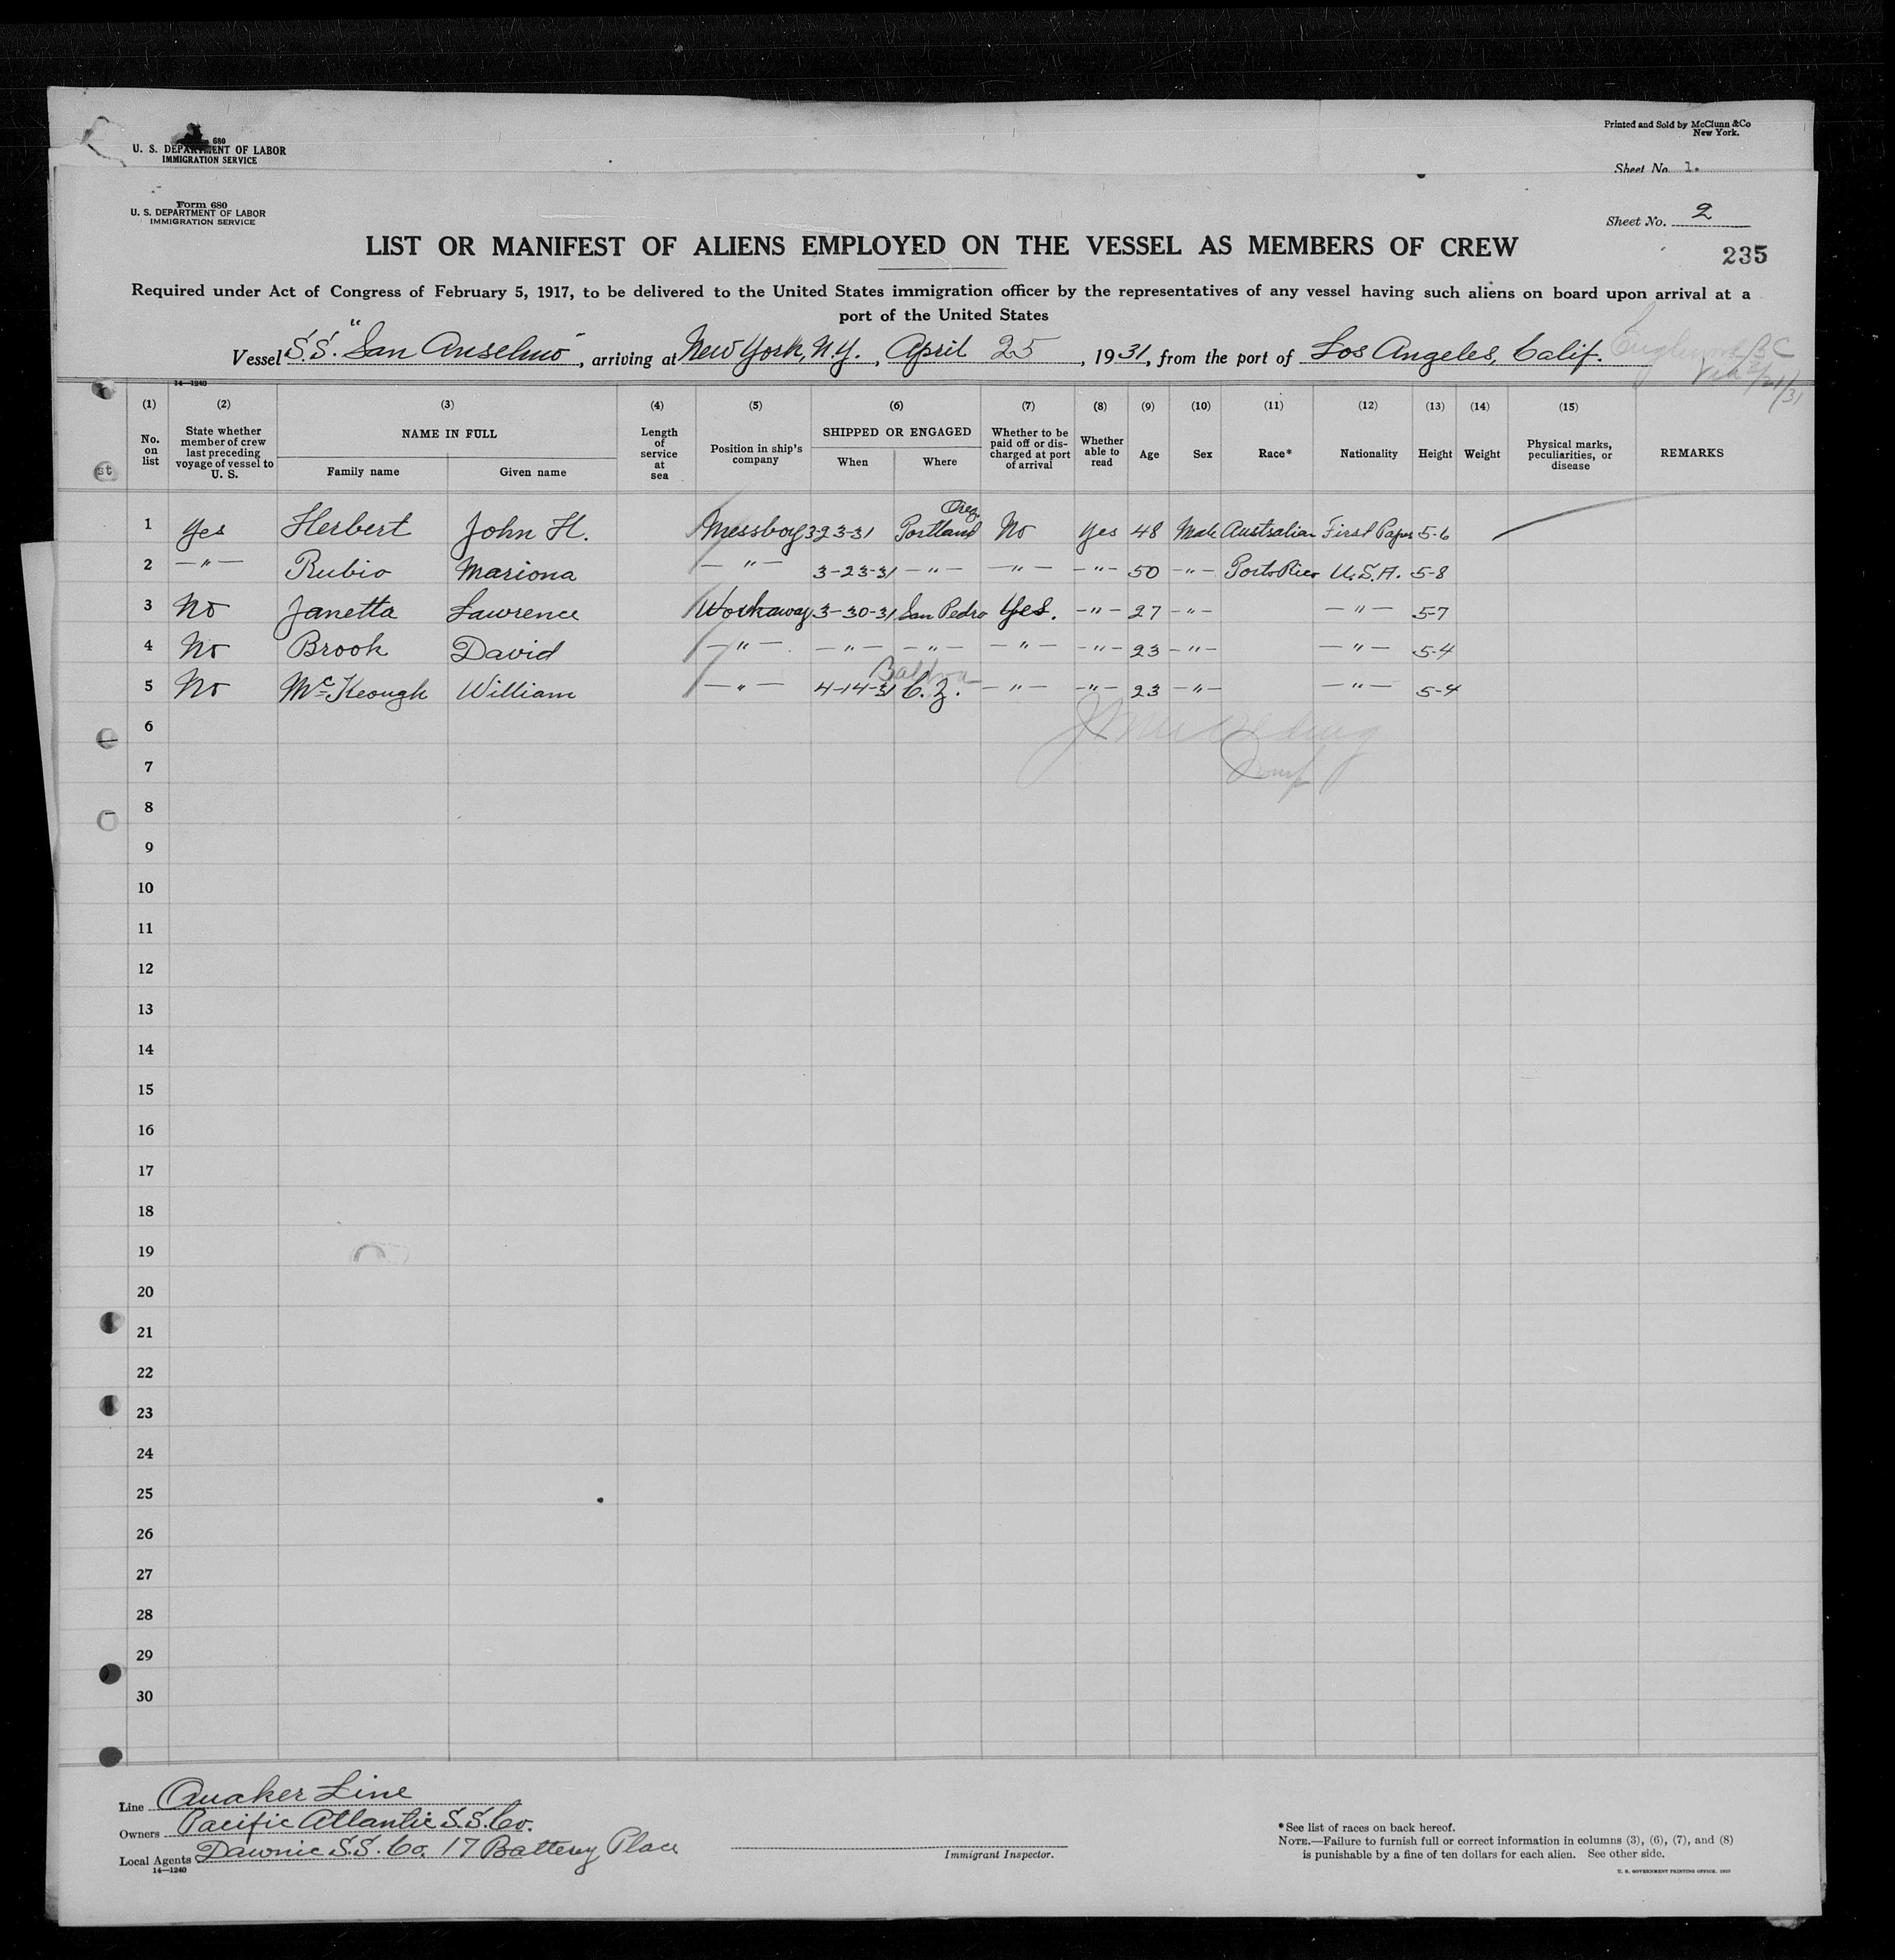 680
U. S. DEPARTMENT OF LABOR
IMMIGRATION SERVICE
Printed and Sold by McClunn &Co
New York.
Sheet No. 1.
Form 680
U. S. DEPARTMENT OF LABOR
IMMIGRATION SERVICE
Sheet No. 2
235
LIST OR MANIFEST OF ALIENS EMPLOYED ON THE VESSEL AS MEMBERS OF CREW
Required under Act of Congress of February 5, 1917, to be delivered to the United States immigration officer by the representatives of any vessel having such aliens on board upon arrival at a
port of the United States
Vessel S.S. "San Anselmo", arriving at New York, N.Y., April 25, 1931, from the port of Los Angeles, Calif.
14—1240
(1) (2) (3) (4) (5) (6) (7) (8) (9) (10) (11) (12) (13) (14) (15)
No. on list
State whether member of crew last preceding voyage of vessel to U. S.
NAME IN FULL
Family name Given name
Length of service at sea
Position in ship's company
SHIPPED OR ENGAGED
When Where
Whether to be paid off or discharged at port of arrival
Whether able to read
Age Sex Race* Nationality Height Weight
Physical marks, peculiarities, or disease
REMARKS
st
1 Yes Herbert John H. Messboy 3-23-31 Portland Oreg. No Yes 48 Male Australian First Paper 5-6
2 —"— Rubio Mariona —"— 3-23-31 —"— —"— —"— 50 —"— Porto Rico U.S.A. 5-8
3 No Janetta Lawrence Workaway 3-30-31 San Pedro Yes. —"— 27 —"— —"— 5-7
4 No Brook David —"— —"— —"— —"— —"— 23 —"— —"— 5-4
5 No McKeough William —"— 4-14-31 Balboa C.Z. —"— —"— 23 —"— —"— 5-4
6
7
8
9
10
11
12
13
14
15
16
17
18
19
20
21
22
23
24
25
26
27
28
29
30
Line Quaker Line
Owners Pacific Atlantic S.S. Co.
Local Agents Dawnic S.S. Co. 17 Battery Place
14—1240
Immigrant Inspector.
*See list of races on back hereof.
NOTE.—Failure to furnish full or correct information in columns (3), (6), (7), and (8)
is punishable by a fine of ten dollars for each alien. See other side.
U. S. GOVERNMENT PRINTING OFFICE.